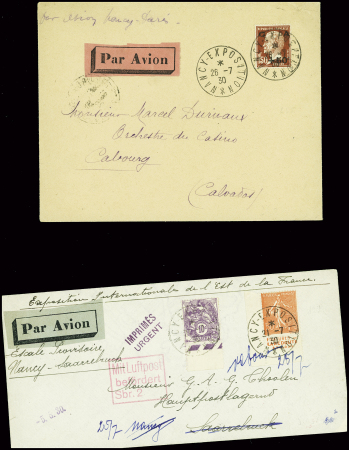 par avion Nancy-Paris.
Par Avion
NANCY-EXPOSITION
26-7
30
Monsieur Marcel Durnaux
Orchestre du Casino
Cabourg
(Calvados)
Exposition Internationale de l'Est de la France.
Par Avion
IMPRIMÉS
URGENT
NANCY-EXPOSITION
30
Escale Provisoire,
Nancy-Saarrebruck
Mit Luftpost
befördert
Sbr. 2
retour 25/7
Monsieur G. A. G. Thoolen
Hauptpostlagernd
25/7 Nancy
Saarrebruck